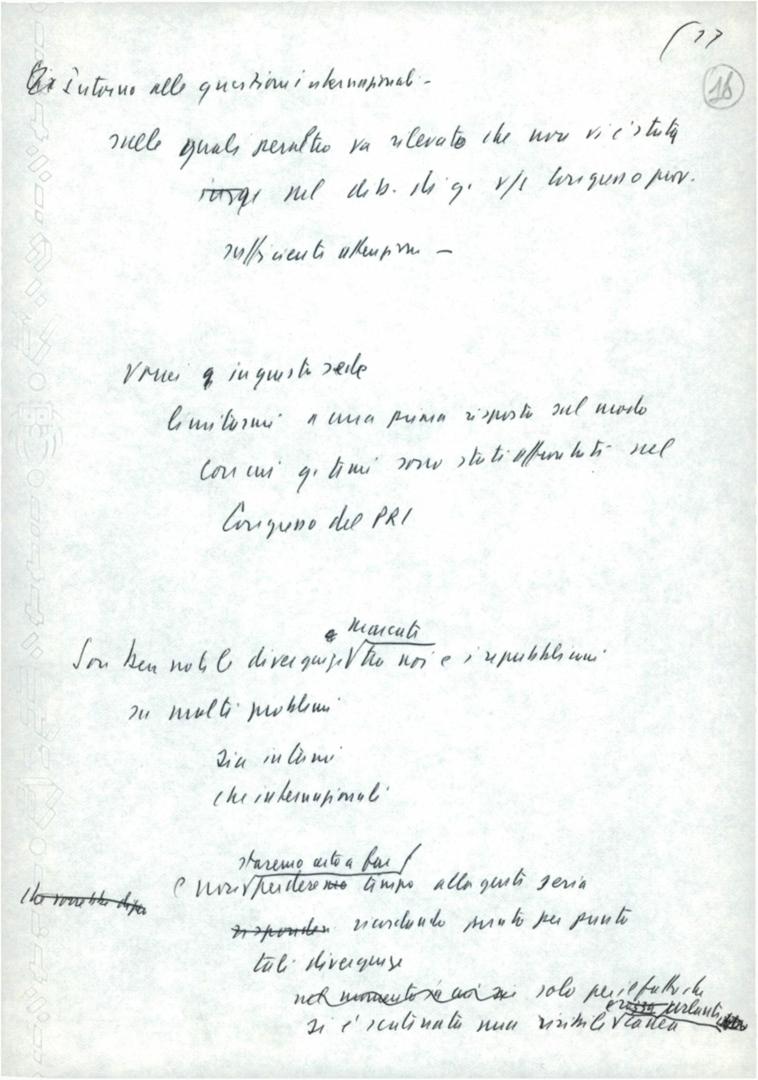 (77
16
Intorno alle questioni internazionali -
sulle quali peraltro va rilevato che non vi è stata
nel dib. di q. n/s Congresso prov.
sufficiente attenzione —
Vorrei in questa sede
limitarmi a una prima risposta sul modo
con cui q. temi sono stati affrontati nel
Congresso del PRI
marcate
Son ben note le divergenze tra noi e i repubblicani
su molti problemi
sia interni
che internazionali
staremo certo a far
E non perdere tempo alla gente seria
risponder ricordando punto per punto
tali divergenze
nel momento in cui si solo per il fatto che
si è scatenata una risibile